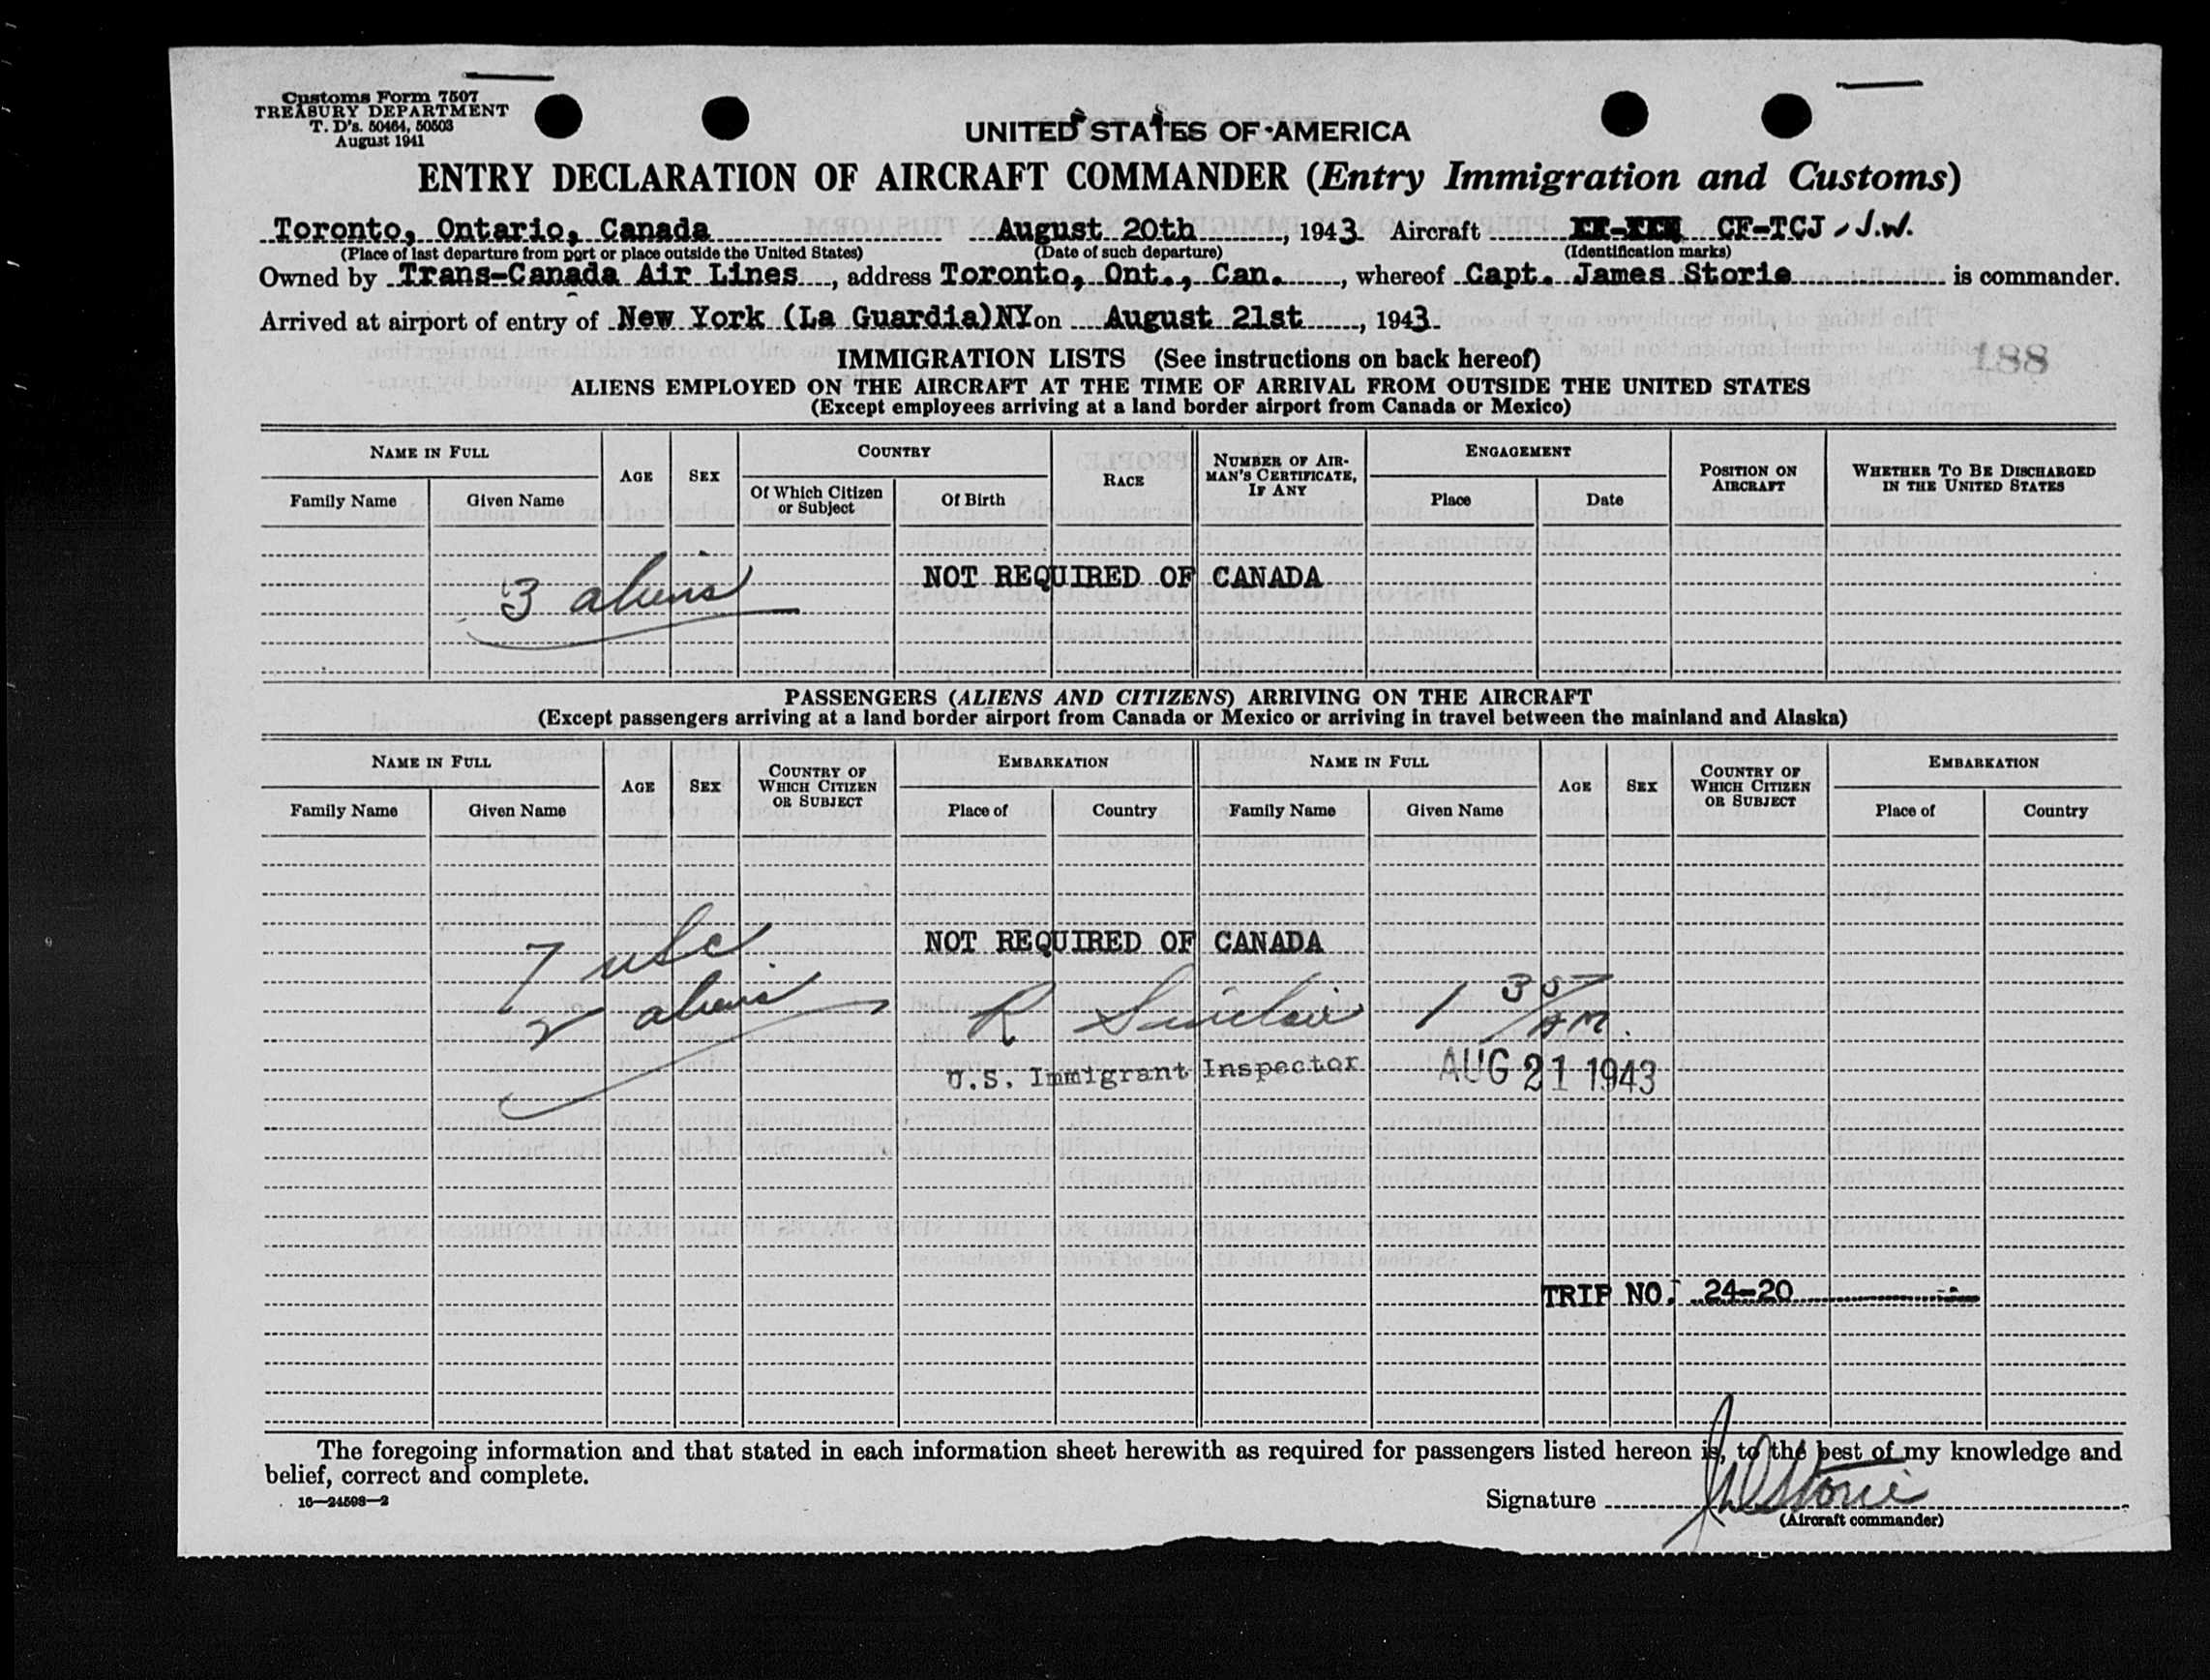 Customs Form 7507
TREASURY DEPARTMENT
T. D's. 50464, 50503
August 1941
UNITED STATES OF AMERICA
ENTRY DECLARATION OF AIRCRAFT COMMANDER (Entry Immigration and Customs)
Toronto, Ontario, Canada August 20th, 1943 Aircraft CF-TCJ - J.W.
(Place of last departure from port or place outside the United States) (Date of such departure) (Identification marks)
Owned by Trans-Canada Air Lines, address Toronto, Ont., Can., whereof Capt. James Storie is commander.
Arrived at airport of entry of New York (La Guardia)NY on August 21st, 1943
IMMIGRATION LISTS (See instructions on back hereof)
188
ALIENS EMPLOYED ON THE AIRCRAFT AT THE TIME OF ARRIVAL FROM OUTSIDE THE UNITED STATES
(Except employees arriving at a land border airport from Canada or Mexico)
NAME IN FULL AGE SEX COUNTRY RACE NUMBER OF AIRMAN'S CERTIFICATE, IF ANY ENGAGEMENT POSITION ON AIRCRAFT WHETHER TO BE DISCHARGED IN THE UNITED STATES
Family Name Given Name Of Which Citizen or Subject Of Birth Place Date
3 aliens NOT REQUIRED OF CANADA
PASSENGERS (ALIENS AND CITIZENS) ARRIVING ON THE AIRCRAFT
(Except passengers arriving at a land border airport from Canada or Mexico or arriving in travel between the mainland and Alaska)
NAME IN FULL AGE SEX COUNTRY OF WHICH CITIZEN OR SUBJECT EMBARKATION NAME IN FULL AGE SEX COUNTRY OF WHICH CITIZEN OR SUBJECT EMBARKATION
Family Name Given Name Place of Country Family Name Given Name Place of Country
7 usc NOT REQUIRED OF CANADA
2 aliens R Sinclair 1 35 AM.
U.S. Immigrant Inspector AUG 21 1943
TRIP NO. 24-20
The foregoing information and that stated in each information sheet herewith as required for passengers listed hereon is, to the best of my knowledge and
belief, correct and complete.
16—24598—2
Signature JWStorie
(Aircraft commander)